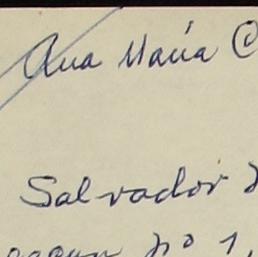 Ana María C
Salvador
no 1,